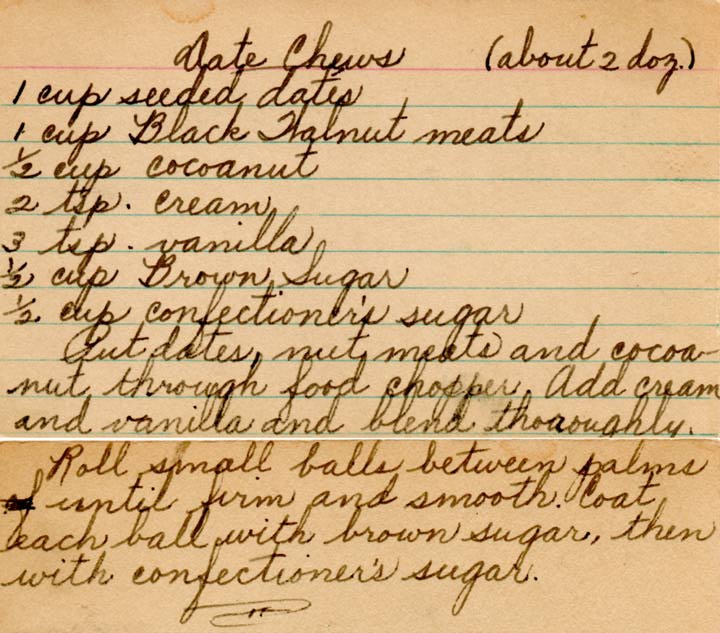 Date Chews (about 2 doz.)
1 cup seeded dates
1 cup Black Walnut meats
½ cup cocoanut
2 tsp. cream
3 tsp. vanilla
½ cup Brown Sugar
½ cup confectioner's sugar
Put dates, nut meats and cocoa-
nut through food chopper. Add cream
and vanilla and blend thoroughly.
Roll small balls between palms
until firm and smooth. Coat
each ball with brown sugar, then
with confectioner's sugar.